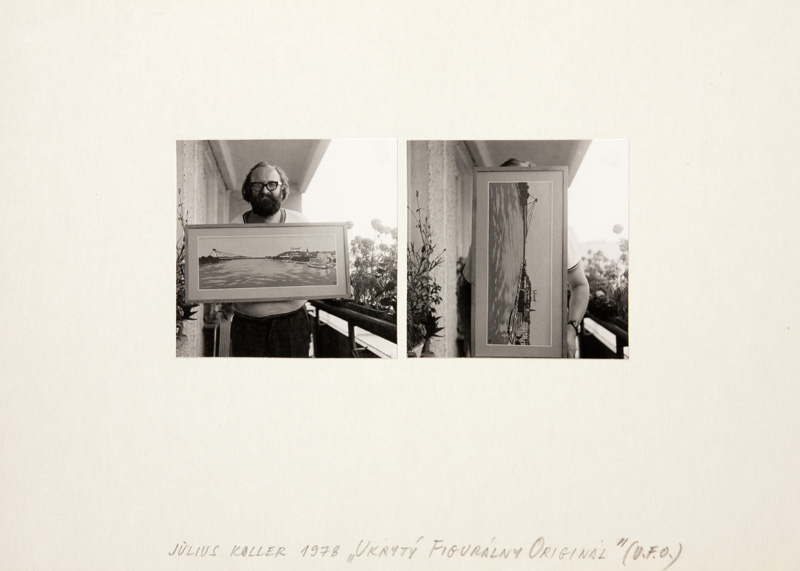 JÚLIUS KOLLER 1978 „UKRYTÝ FIGURÁLNY ORIGINÁL" (U.F.O.)